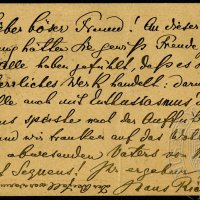 ieber böser Freund! An dieser
ung hätten Sie gewiß Freude
elle haben gefühlt, daß es s
herrliches Werk handelt: daru
lle auch mit Enthusiasmus
uns
nach der Aufführ
und wir tranken auf das Wohl
abwesenden Vaters von
Sequens! Ihr ergeben
Hans Ric